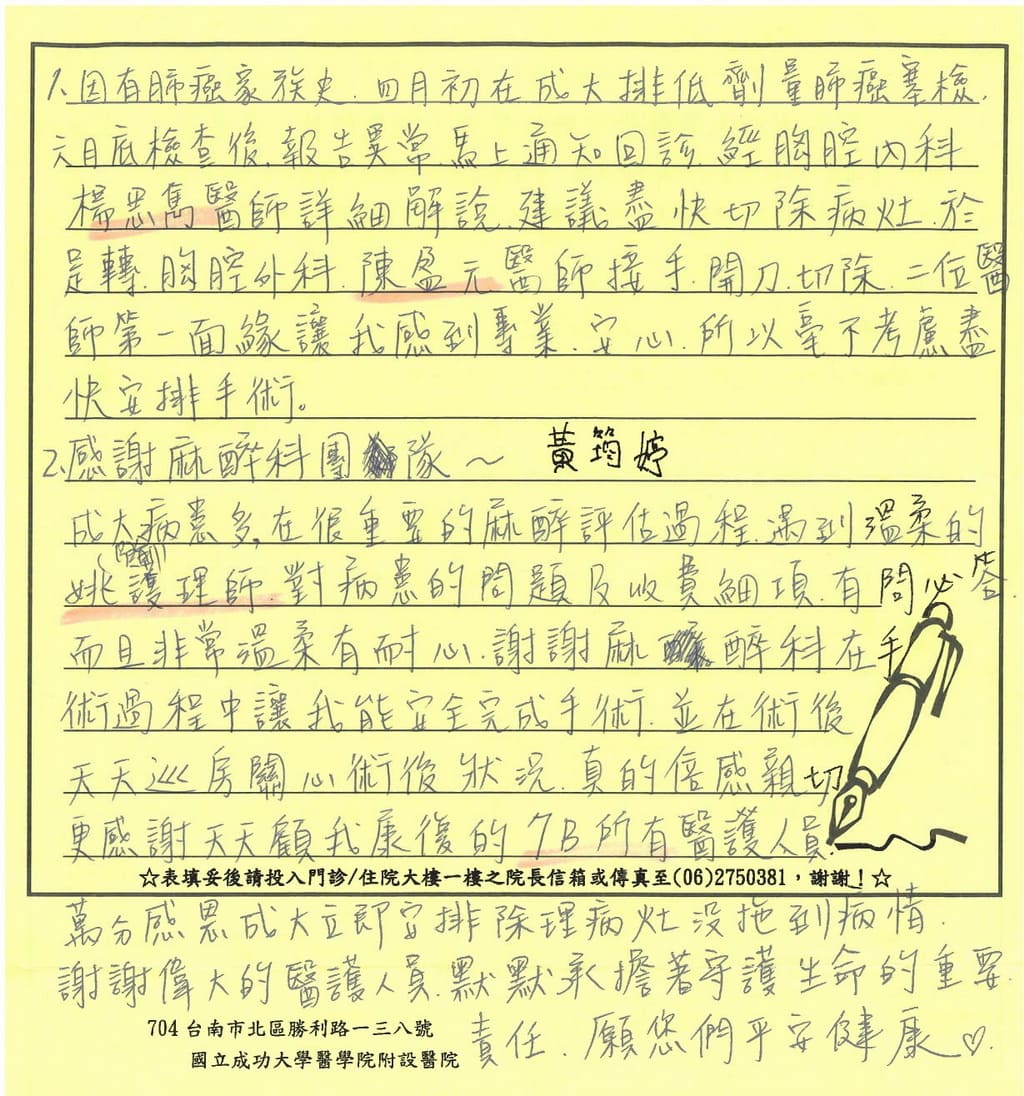 1.因有肺癌家族史.四月初在成大排低劑量肺癌塞檢.
六月底檢查後.報告異常.馬上通知回診.經胸腔內科
楊思雋醫師詳細解說.建議盡快切除病灶.於
是轉.胸腔外科.陳盈元醫師接手.開刀.切除.二位醫
師第一面緣讓我感到專業.安心.所以毫不考慮盡
快安排手術。
2.感謝麻醉科團隊～ 黃筠婷
成大病患多,在很重要的麻醉評估過程.遇到溫柔的
姚護理師.對病患的問題及收費細項.有問必答.
而且非常溫柔有耐心.謝謝麻醉科在手
術過程中讓我能安全完成手術.並在術後
天天巡房關心術後狀況.真的倍感親切
更感謝天天顧我康復的7B所有醫護人員.
☆表填妥後請投入門診/住院大樓一樓之院長信箱或傳真至(06)2750381，謝謝！☆
萬分感恩成大立即安排除理病灶沒拖到病情.
謝謝偉大的醫護人員.默默承擔著守護生命的重要
責任.願您們平安健康♡.
704台南市北區勝利路一三八號
國立成功大學醫學院附設醫院